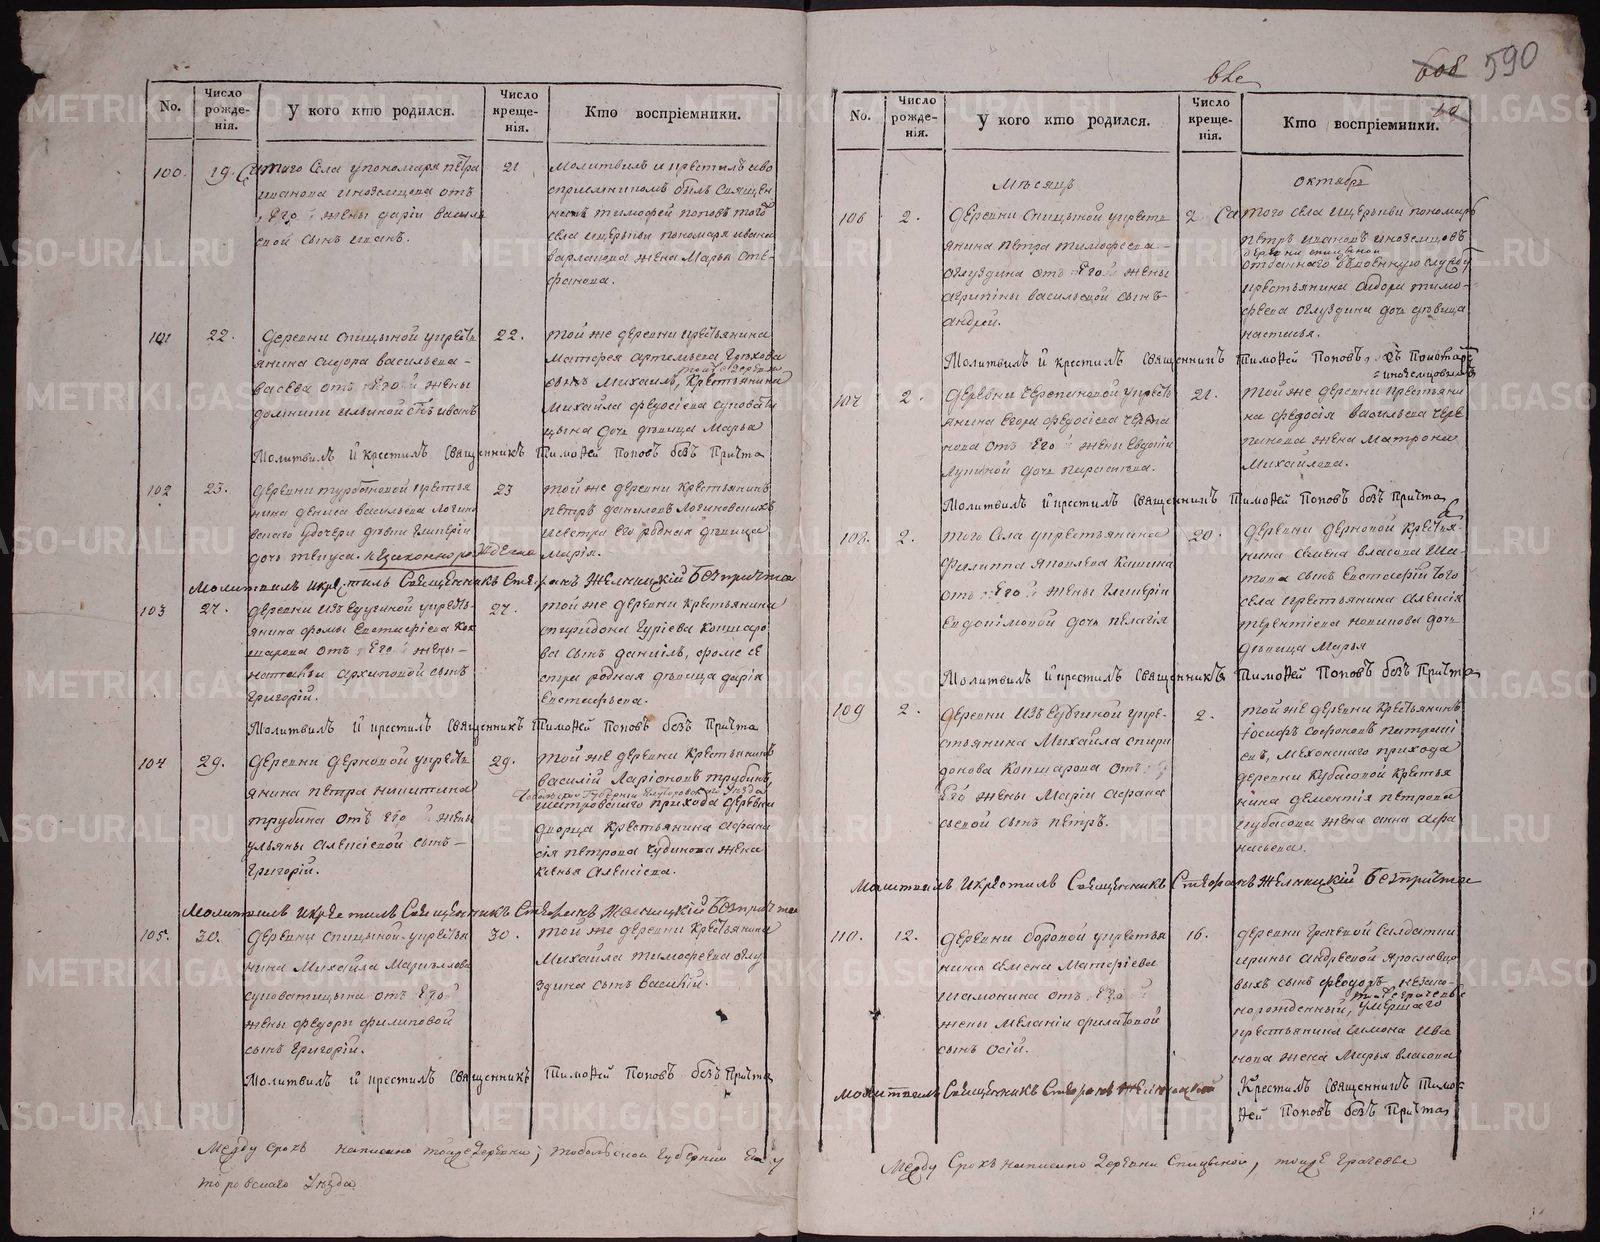 No.
Число рожде-нія.
У кого кто родился.
Число креще-нія.
Кто воспріемники.
100.
19.
того Села упономаря петра
иванова иноземцова отъ
Его жены даріи василь
евой сынъ иванъ.
21
молитвилъ и крестилъ иво
спріемникомъ былъ Священ
никъ тимофей поповъ того
села ицеркви пономаря ивана
варлакова жена Марья сте-
фанова.
101
22.
деревни спицыной укрестъ
янина сидора васильева
отъ Его жены
ильиной сынъ иванъ
22.
той же деревни крестьянина
сынъ михаилъ, той же деревни крестьянина
Михаила федосіева суповати
цына дочь дѣвица Марья
Молитвилъ и крестилъ священникъ Тимофей Поповъ безъ Причта
102
23.
деревни крестья
нина дениса васильева логино
вскаго дочери дѣвки гликеріи
незаконнорожденна
23
той же деревни крестьянинъ
петръ даниловъ логиновскихъ
исестра его родная дѣвица
марія.
Молитвилъ икрестилъ Священникъ Стефанъ Желницкій Безпричта
103
27.
деревни изъедугиной укресть
янина фомы Евстафіева Кок
шарова отъ Его жены
натальи архиповой сынъ
григорій.
27.
той же деревни крестьянина
спиридона гуріева кокшаро
ва сынъ даниилъ, фоме се
стра родная дѣвица дарія
Евстафьева.
Молитвилъ и крестилъ священникъ Тимофей Поповъ безъ Причта
104
29.
деревни дерновой укресть
янина петра никитина
трубина отъ его жены
ульяны алексіевой сынъ
григорій.
29.
той же деревни крестьянинъ
василій Ларіоновъ трубинъ,
Тобольской Губерніи Ялуторовскаго Уезда
шатровскаго прихода деревни
дворца крестьянина афана
сія петрова чудинова жена
ксенья алексіева.
Молитвилъ икрестилъ Священникъ Стефанъ Желницкій Безпричта
105.
30.
деревни спицыной укрестья
нина михаила
суповатицына отъ Его
жены федоры филиповой
сынъ григорій.
30.
той же деревни крестьянина
Михаила тимофеева оглу
здина сынъ василій.
Молитвилъ и крестилъ священникъ Тимофей Поповъ безъ Причта
Между строкъ написано тойже деревни, тобольской губерніи Ялу
торовскаго Уезда
608 590
No.
Число рожде-нія.
У кого кто родился.
Число креще-нія.
Кто воспріемники.
Мѣсяцъ
октябрь
106
2.
деревни спицыной укресть
янина петра тимофеева
оглуздина отъ Его жены
агрипины васильевой сынъ
андрей.
2
того села ицеркви пономарь
петръ ивановъ иноземцовъ
деревни спицыной
отданнаго въвоенную службу
крестьянина сидора тимо-
феева оглуздина дочь дѣвица
настасья.
Молитвилъ и крестилъ священникъ Тимофей Поповъ, съ Пономаремъ
иноземцовымъ
107
2.
деревни черепановой укресть
янина егора федосіева черепа
нова отъ Его жены Евдокіи
лупиной дочь параскева.
21.
той же деревни крестьяни
на федосія васильева чере
панова жена матрона
михайлова.
Молитвилъ и крестилъ священникъ Тимофей Поповъ безъ Причта
108.
2.
того Села укрестьянина
Филиппа яковлева кашина
отъ Его жены гликеріи
Евдокимовой дочь пелагія
20.
деревни дерновой крестья-
нина семена власова ша-
това сынъ Евстафій того
села крестьянина алексія
терентіева новикова дочь
дѣвица марья
Молитвилъ и крестилъ священникъ Тимофей Поповъ безъ Причта
109
2.
деревни изъедугиной укре-
стьянина Михаила спири
донова Кокшарова отъ
Его жены Маріи афана
сьевой сынъ петръ.
2.
той же деревни крестьянинъ
іосифъ софроновъ
мехонскаго прихода
деревни кубасовой крестья
нина дементія петрова
кубасова жена анна афа
насьева.
Молитвилъ икрестилъ Священникъ Стефанъ Желницкій Безпричта
110.
12.
деревни боровой укрестья
нина семена
мамонина отъ Его
жены меланіи филатовой
сынъ осій.
16.
деревни грачевой салдатки
ирины андреевой ярославцо
выхъ сынъ федоръ незако-
норожденный, тойже грачевы умершаго
крестьянина симона ива
нова жена Марья власова
Молитвилъ Священникъ Стефанъ Желницкій
Крестилъ священникъ Тимо-
фей Поповъ безъ Причта
Между Строкъ написано деревни Спицыной, тойже грачевы